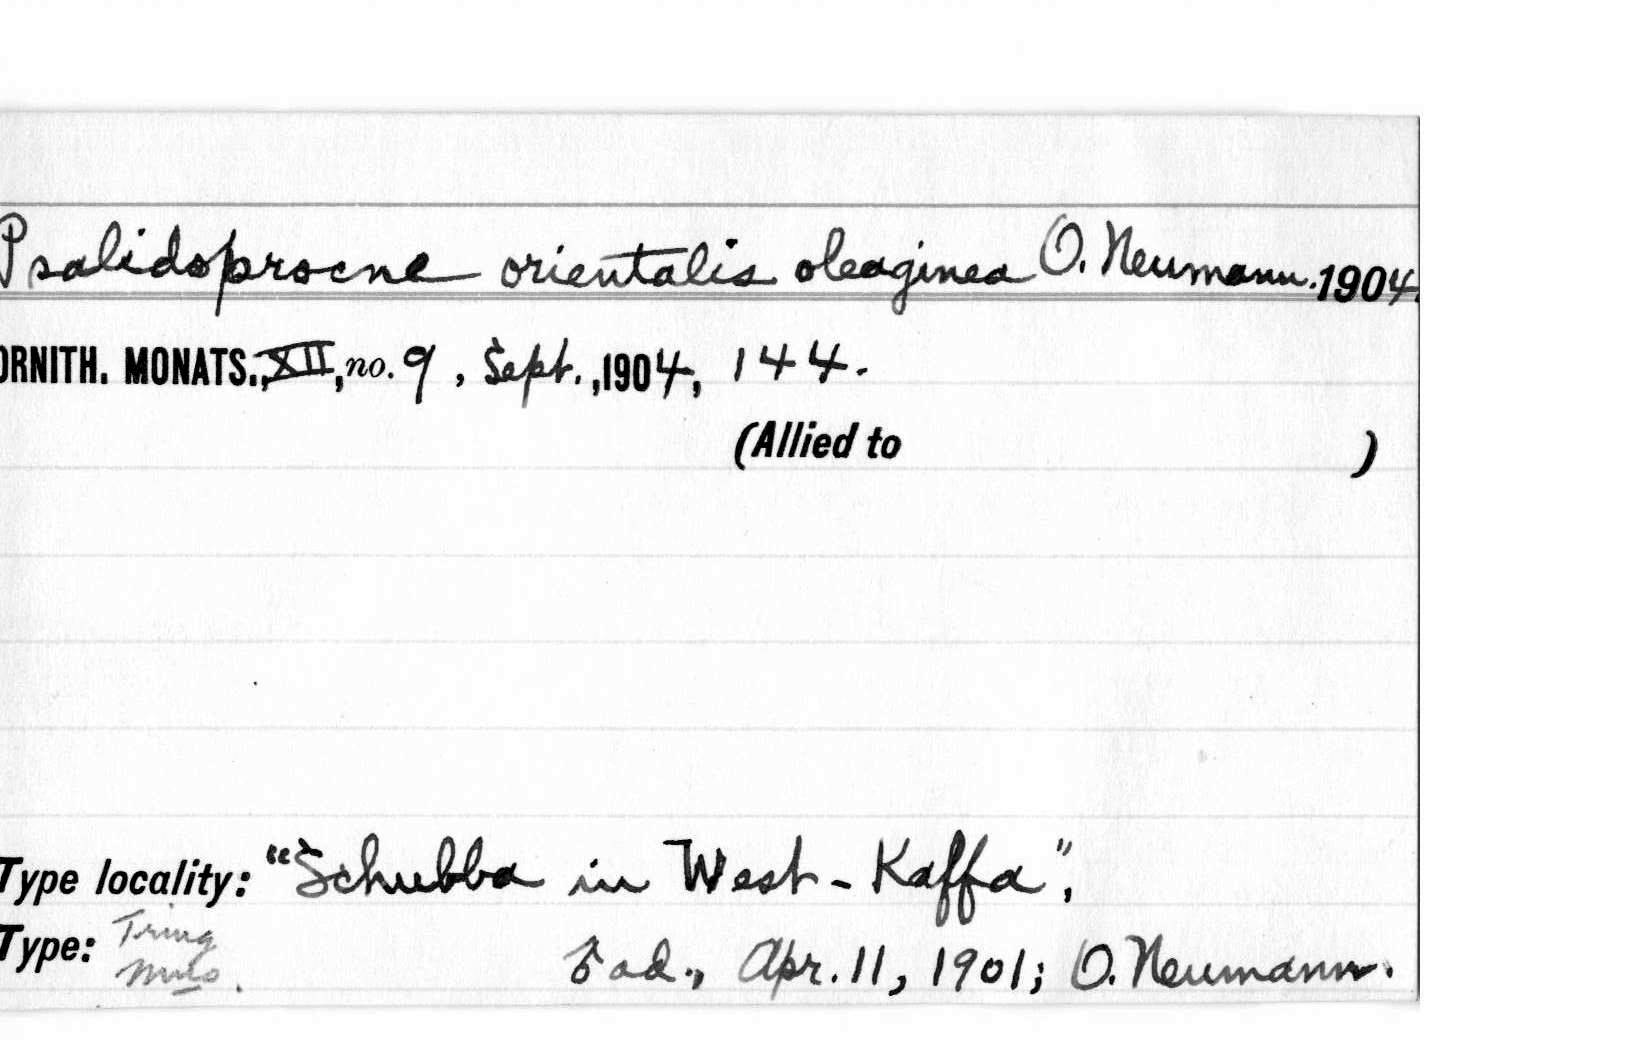 Psalidoprocne orientalis oleaginea O. Neumann. 1904.
ORNITH. MONATS., XII, no. 9, Sept., 1904, 144.
(Allied to )
Type locality: "Schubba in West-Kaffa",
Type: Tring Mus. ad., Apr. 11, 1901; O. Neumann.